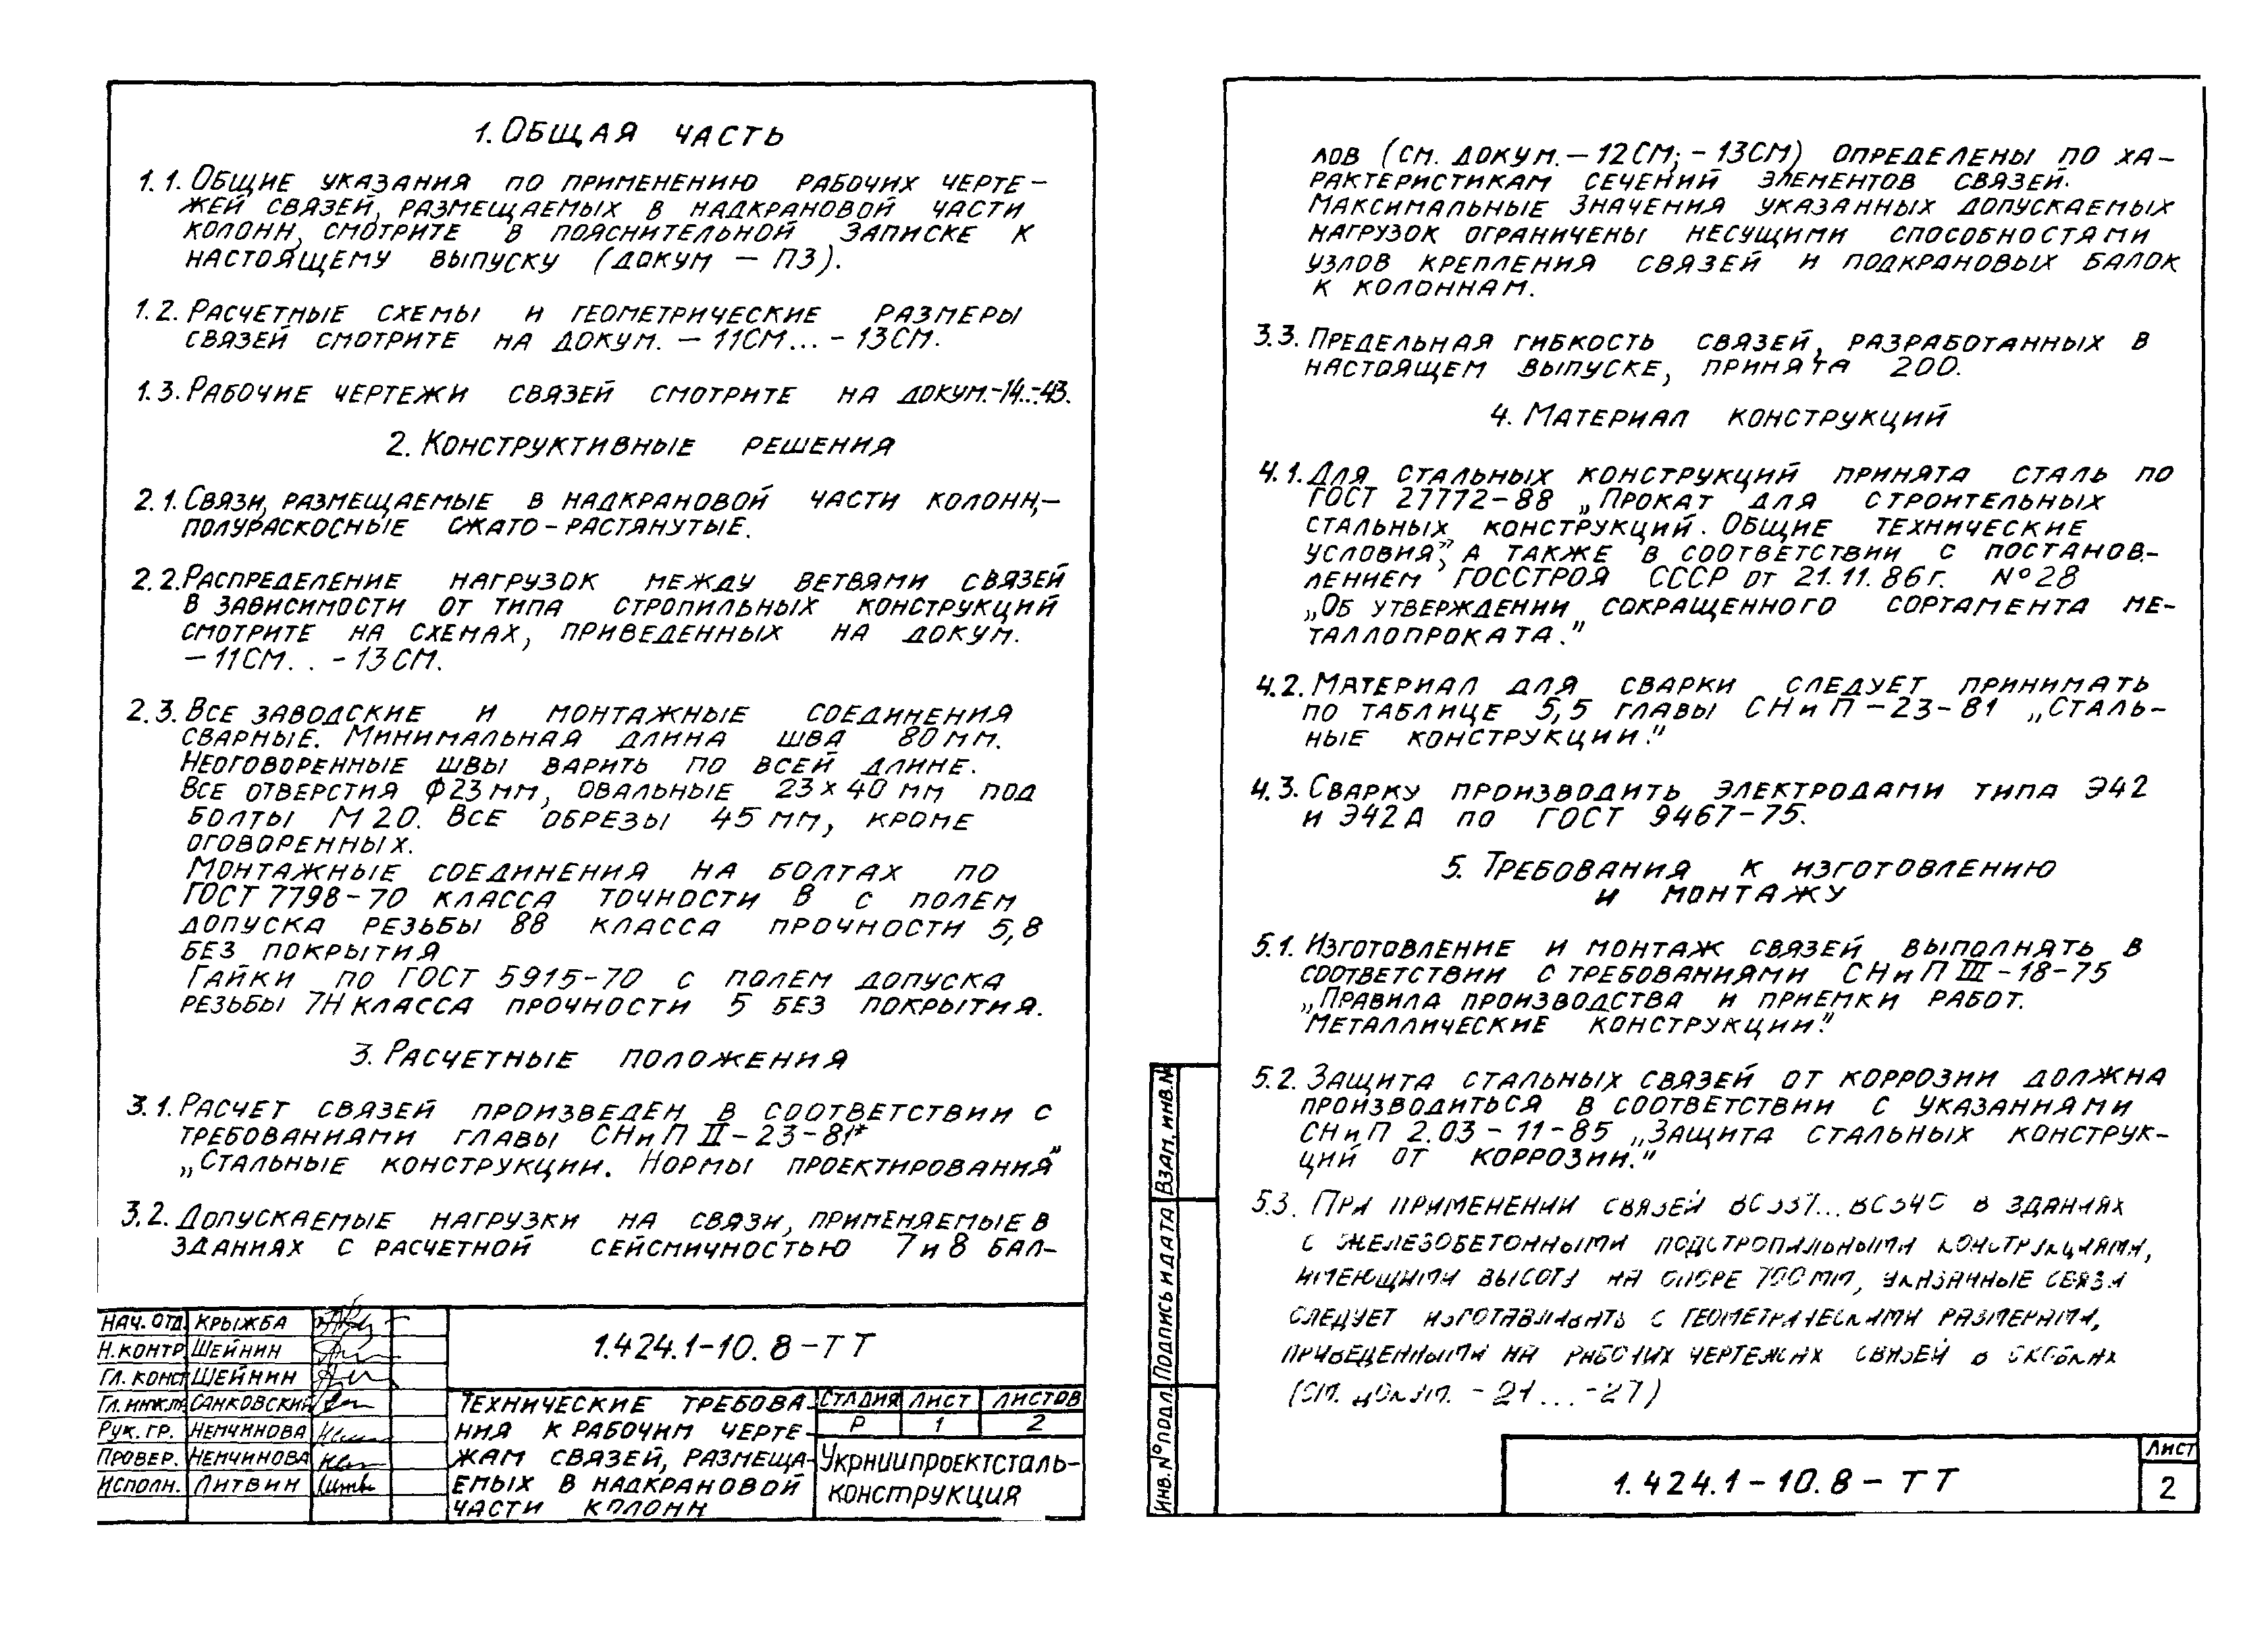 1. Общая часть
1.1. Общие указания по применению рабочих черте-
жей связей, размещаемых в надкрановой части
колонн, смотрите в пояснительной записке к
настоящему выпуску (докум – ПЗ).
1.2. Расчетные схемы и геометрические размеры
связей смотрите на докум. – 11СМ... – 13СМ.
1.3. Рабочие чертежи связей смотрите на докум.-14..-43.
2. Конструктивные решения
2.1. Связи, размещаемые в надкрановой части колонн,–
полураскосные сжато-растянутые.
2.2. Распределение нагрузок между ветвями связей
в зависимости от типа стропильных конструкций
смотрите на схемах, приведенных на докум.
– 11СМ. . - 13СМ.
2.3. Все заводские и монтажные соединения
сварные. Минимальная длина шва 80мм.
Неоговоренные швы варить по всей длине.
Все отверстия ф23мм, овальные 23×40 мм под
болты М20. Все обрезы 45мм, кроме
оговоренных.
Монтажные соединения на болтах по
ГОСТ 7798-70 класса точности В с полем
допуска резьбы 88 класса прочности 5,8
без покрытия
Гайки по ГОСТ 5915-70 с полем допуска
резьбы 7Н класса прочности 5 без покрытия.
3. Расчетные положения
3.1. Расчет связей произведен в соответствии с
требованиями главы СНиП II-23-81*
„Стальные конструкции. Нормы проектирования”
3.2. Допускаемые нагрузки на связи, применяемые в
зданиях с расчетной сейсмичностью 7 и 8 бал-
Нач. отд. Крыжба
Н.контр. Шейнин
Гл. конст Шейнин
Гл. инж.пр. Санковский
Рук. гр. Немчинова
Провер. Немчинова
Исполн. Литвин
1.424.1-10.8-ТТ
Технические требова-
ния к рабочим черте-
жам связей, размеща-
емых в надкрановой
части колонн
Стадия Лист Листов
Р 1 2
Укрниипроектсталь-
конструкция
лов (см. докум.– 12СМ; – 13СМ) определены по ха-
рактеристикам сечений элементов связей.
Максимальные значения указанных допускаемых
нагрузок ограничены несущими способностями
узлов крепления связей и подкрановых балок
к колоннам.
3.3. Предельная гибкость связей, разработанных в
настоящем выпуске, принята 200.
4. Материал конструкций
4.1. Для стальных конструкций принята сталь по
ГОСТ 27772-88 „Прокат для строительных
стальных конструкций. Общие технические
условия”, а также в соответствии с постанов-
лением Госстроя СССР от 21.11.86г. №28
„Об утверждении сокращенного сортамента ме-
таллопроката.”
4.2. Материал для сварки следует принимать
по таблице 5,5 главы СНиП-23-81 „Сталь-
ные конструкции.”
4.3. Сварку производить электродами типа Э42
и Э42А по ГОСТ 9467-75.
5. Требования к изготовлению
и монтажу
5.1. Изготовление и монтаж связей выполнять в
соответствии с требованиями СНиП III-18-75
„Правила производства и приемки работ.
Металлические конструкции.”
5.2. Защита стальных связей от коррозии должна
производиться в соответствии с указаниями
СНиП 2.03-11-85 „Защита стальных конструк-
ций от коррозии.”
5.3. При применении связей ... в зданиях
с железобетонными подстропильными конструкциями,
имеющими высоту на опоре 700мм, указанные связи
следует изготавливать с геометрическими размерами,
приведенными на рабочих чертежах связей в скобках
(см. докум. - 21 ... - 27)
Взам. инв.№
Подпись и дата
Инв.№ подл.
1.424.1-10.8-ТТ
Лист
2